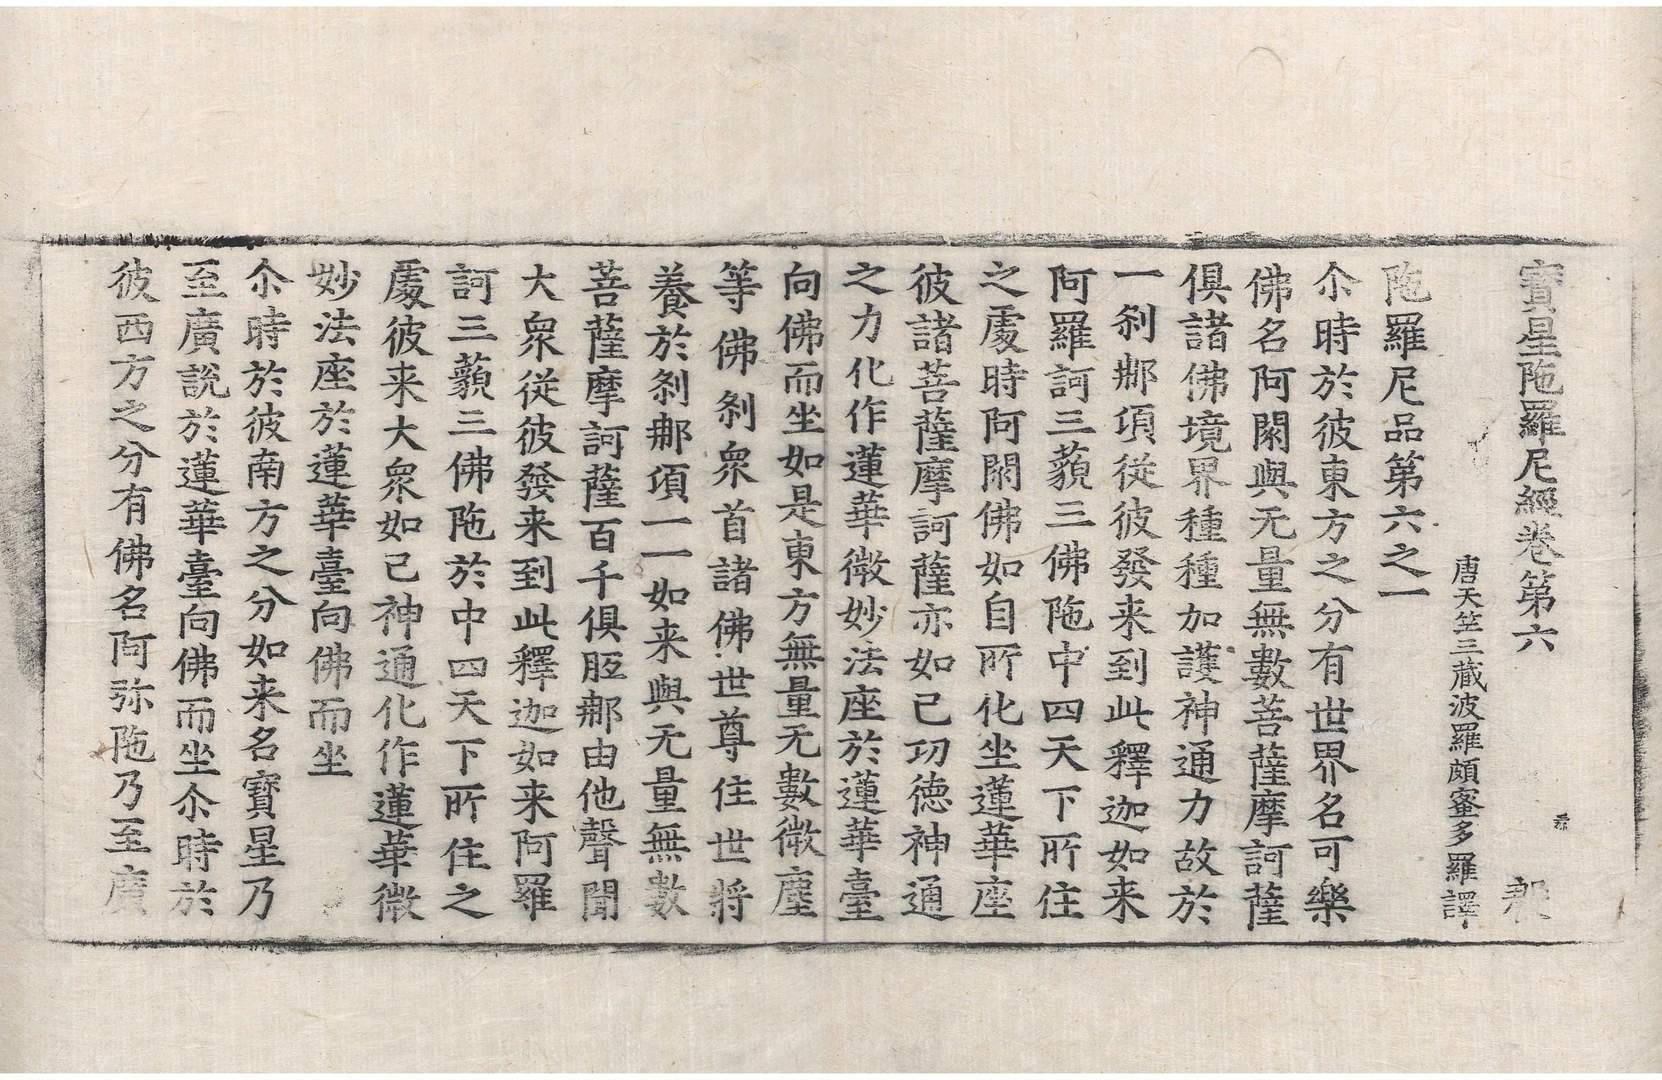 寶星陁羅尼經卷第六
唐天竺三藏波羅頗蜜多羅譯
陁羅尼品第六之一
尒時於彼東方之分有世界名可樂
佛名阿閦與无量無數菩薩摩訶薩
俱諸佛境界種種加護神通力故於
一刹那項從彼發来到此釋迦如来
阿羅訶三藐三佛陁中四天下所住
之處時阿閦佛如自所化坐蓮華座
彼諸菩薩摩訶薩亦如己功德神通
之力化作蓮華微妙法座於蓮華臺
向佛而坐如是東方無量无數微塵
等佛刹眾首諸佛世尊住世將
養於刹那項一一如来與无量無數
菩薩摩訶薩百千俱胝那由他聲聞
大眾従彼發来到此釋迦如来阿羅
訶三藐三佛陁於中四天下所住之
處彼来大眾如己神通化作蓮華微
妙法座於蓮華臺向佛而坐
尒時於彼南方之分如来名寶星乃
至廣說於蓮華臺向佛而坐尒時於
彼西方之分有佛名阿弥陁乃至廣